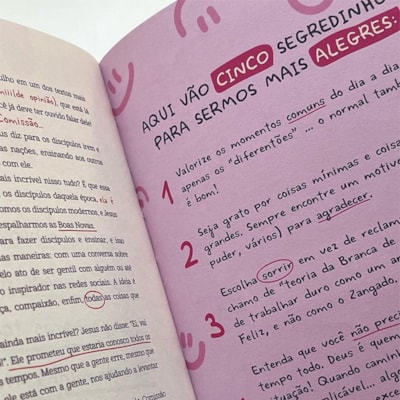 ulho em um dos textos mais
mililde opinião), que está lá
cê já deve ter ouvido falar dele!
Comissão...
us diz para os discípulos irem e
as nações, ensinando aos outros
com ele.
ais incrível nisso tudo? É que essa
os discípulos daquela época, ela é
omos os discípulos modernos, e Jesus
espalharmos as Boas Novas.
ara fazer discípulos e ensinar, e isso
as maneiras: com uma conversa sobre
elo ato de ser gentil com alguém ou até
o inspirador nas redes sociais. A ideia é
ça, compaixão, enfim, todas as coisas que
ainda mais incrível? Jesus não disse: "Ei, vai
i". Ele prometeu que estaria conosco todos os
s tempos. Mesmo que a gente erre, mesmo que
ele está com a gente, nos ajudando a levantar
AQUI VÃO CINCO SEGREDINHO
PARA SERMOS MAIS ALEGRES:
1 Valorize os momentos comuns do dia a dia
apenas os "diferentões" ... o normal tamb
é bom!
2 Seja grato por coisas mínimas e coisa
grandes. Sempre encontre um motivo
puder, vários) para agradecer.
3 Escolha sorrir em vez de reclam
chamo de "teoria da Branca de
de trabalhar duro como um an
Feliz, e não como o Zangado.
Entenda que você não preci
tempo todo. Deus é quem
ituação! Quando caminh
plicável... alegr